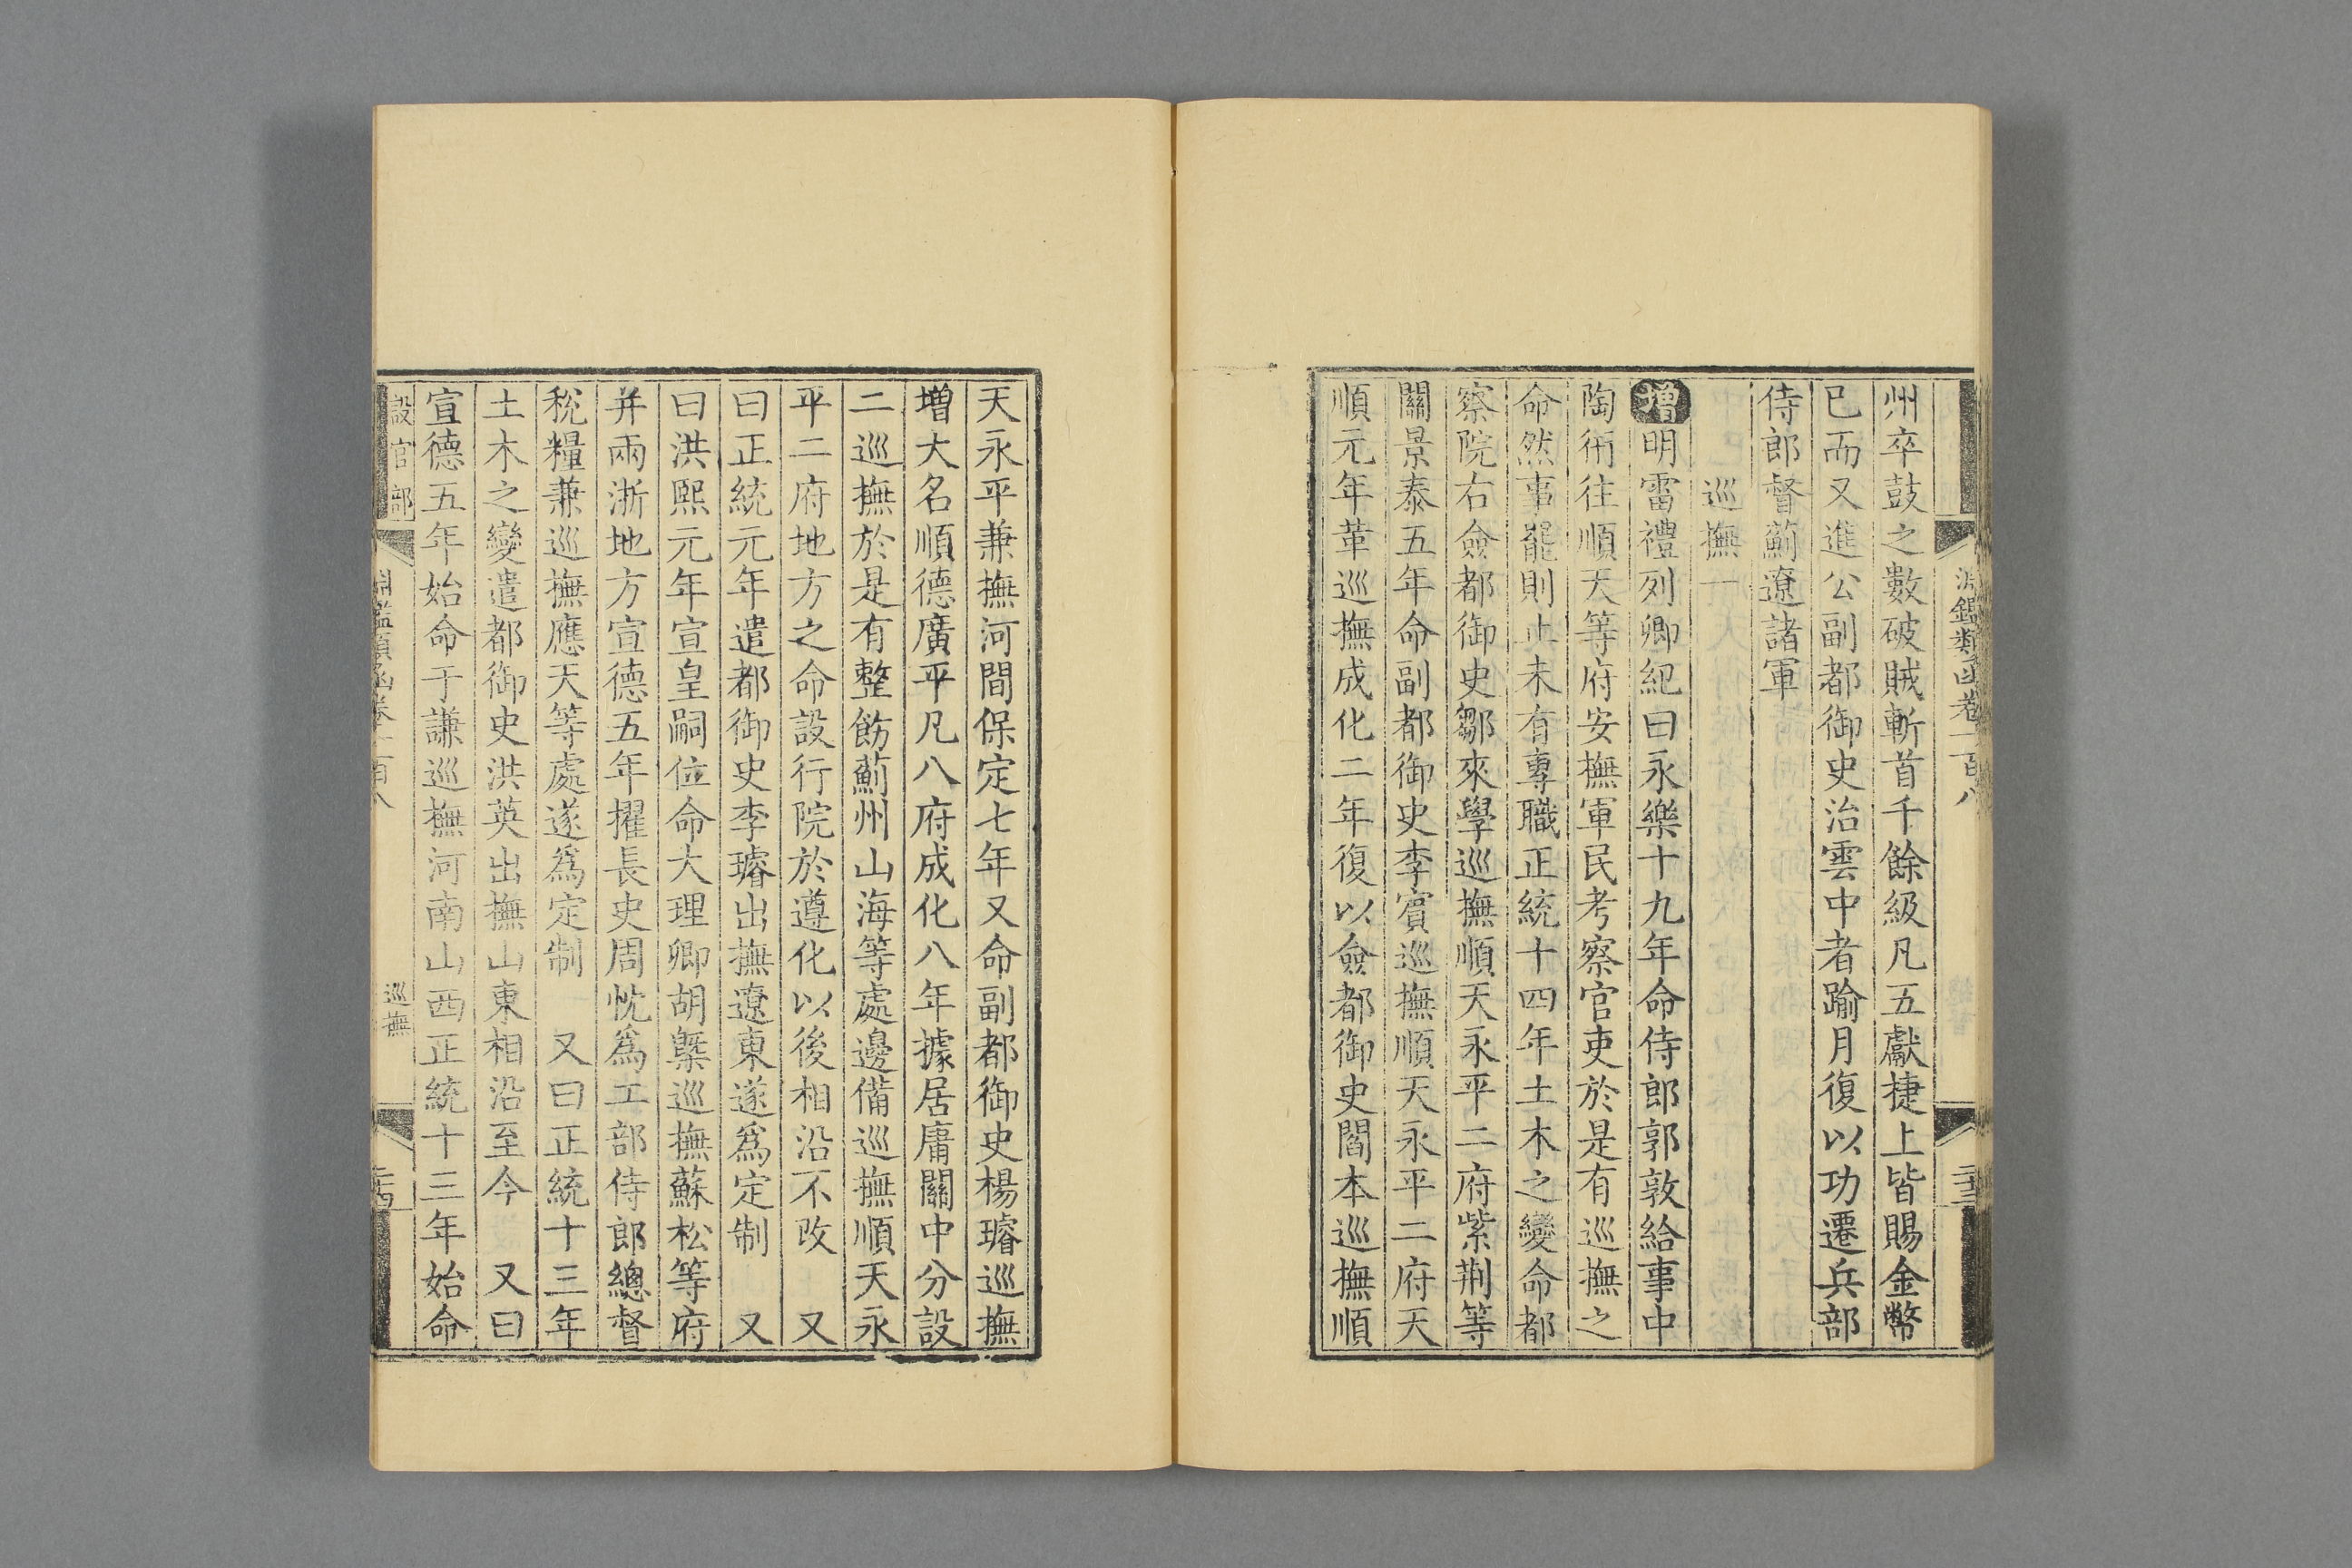 淵鑑類函卷一百八
二十三
州卒鼓之數破賊斬首千餘級凡五獻捷上皆賜金幣
已而又進公副都御史治雲中者踰月復以功遷兵部
侍郎督薊遼諸軍
巡撫一
增明雷禮列卿紀曰永樂十九年命侍郎郭敦給事中
陶衎往順天等府安撫軍民考察官吏於是有巡撫之
命然事罷則止未有專職正統十四年土木之變命都
察院右僉都御史鄒來學巡撫順天永平二府紫荆等
關景泰五年命副都御史李賓巡撫順天永平二府天
順元年革巡撫成化二年復以僉都御史閻本巡撫順
天永平兼撫河間保定七年又命副都御史楊璿巡撫
增大名順德廣平凡八府成化八年據居庸關中分設
二巡撫於是有整飭薊州山海等處邊備巡撫順天永
平二府地方之命設行院於遵化以後相沿不改 又
曰正統元年遣都御史李璿出撫遼東遂爲定制 又
曰洪熙元年宣皇嗣位命大理卿胡槩巡撫蘇松等府
并兩浙地方宣德五年擢長史周忱爲工部侍郎總督
稅糧兼巡撫應天等處遂爲定制 又曰正統十三年
土木之變遣都御史洪英出撫山東相沿至今 又曰
宣德五年始命于謙巡撫河南山西正統十三年始命
設官部
淵鑑類函卷一百八
巡撫
二十四